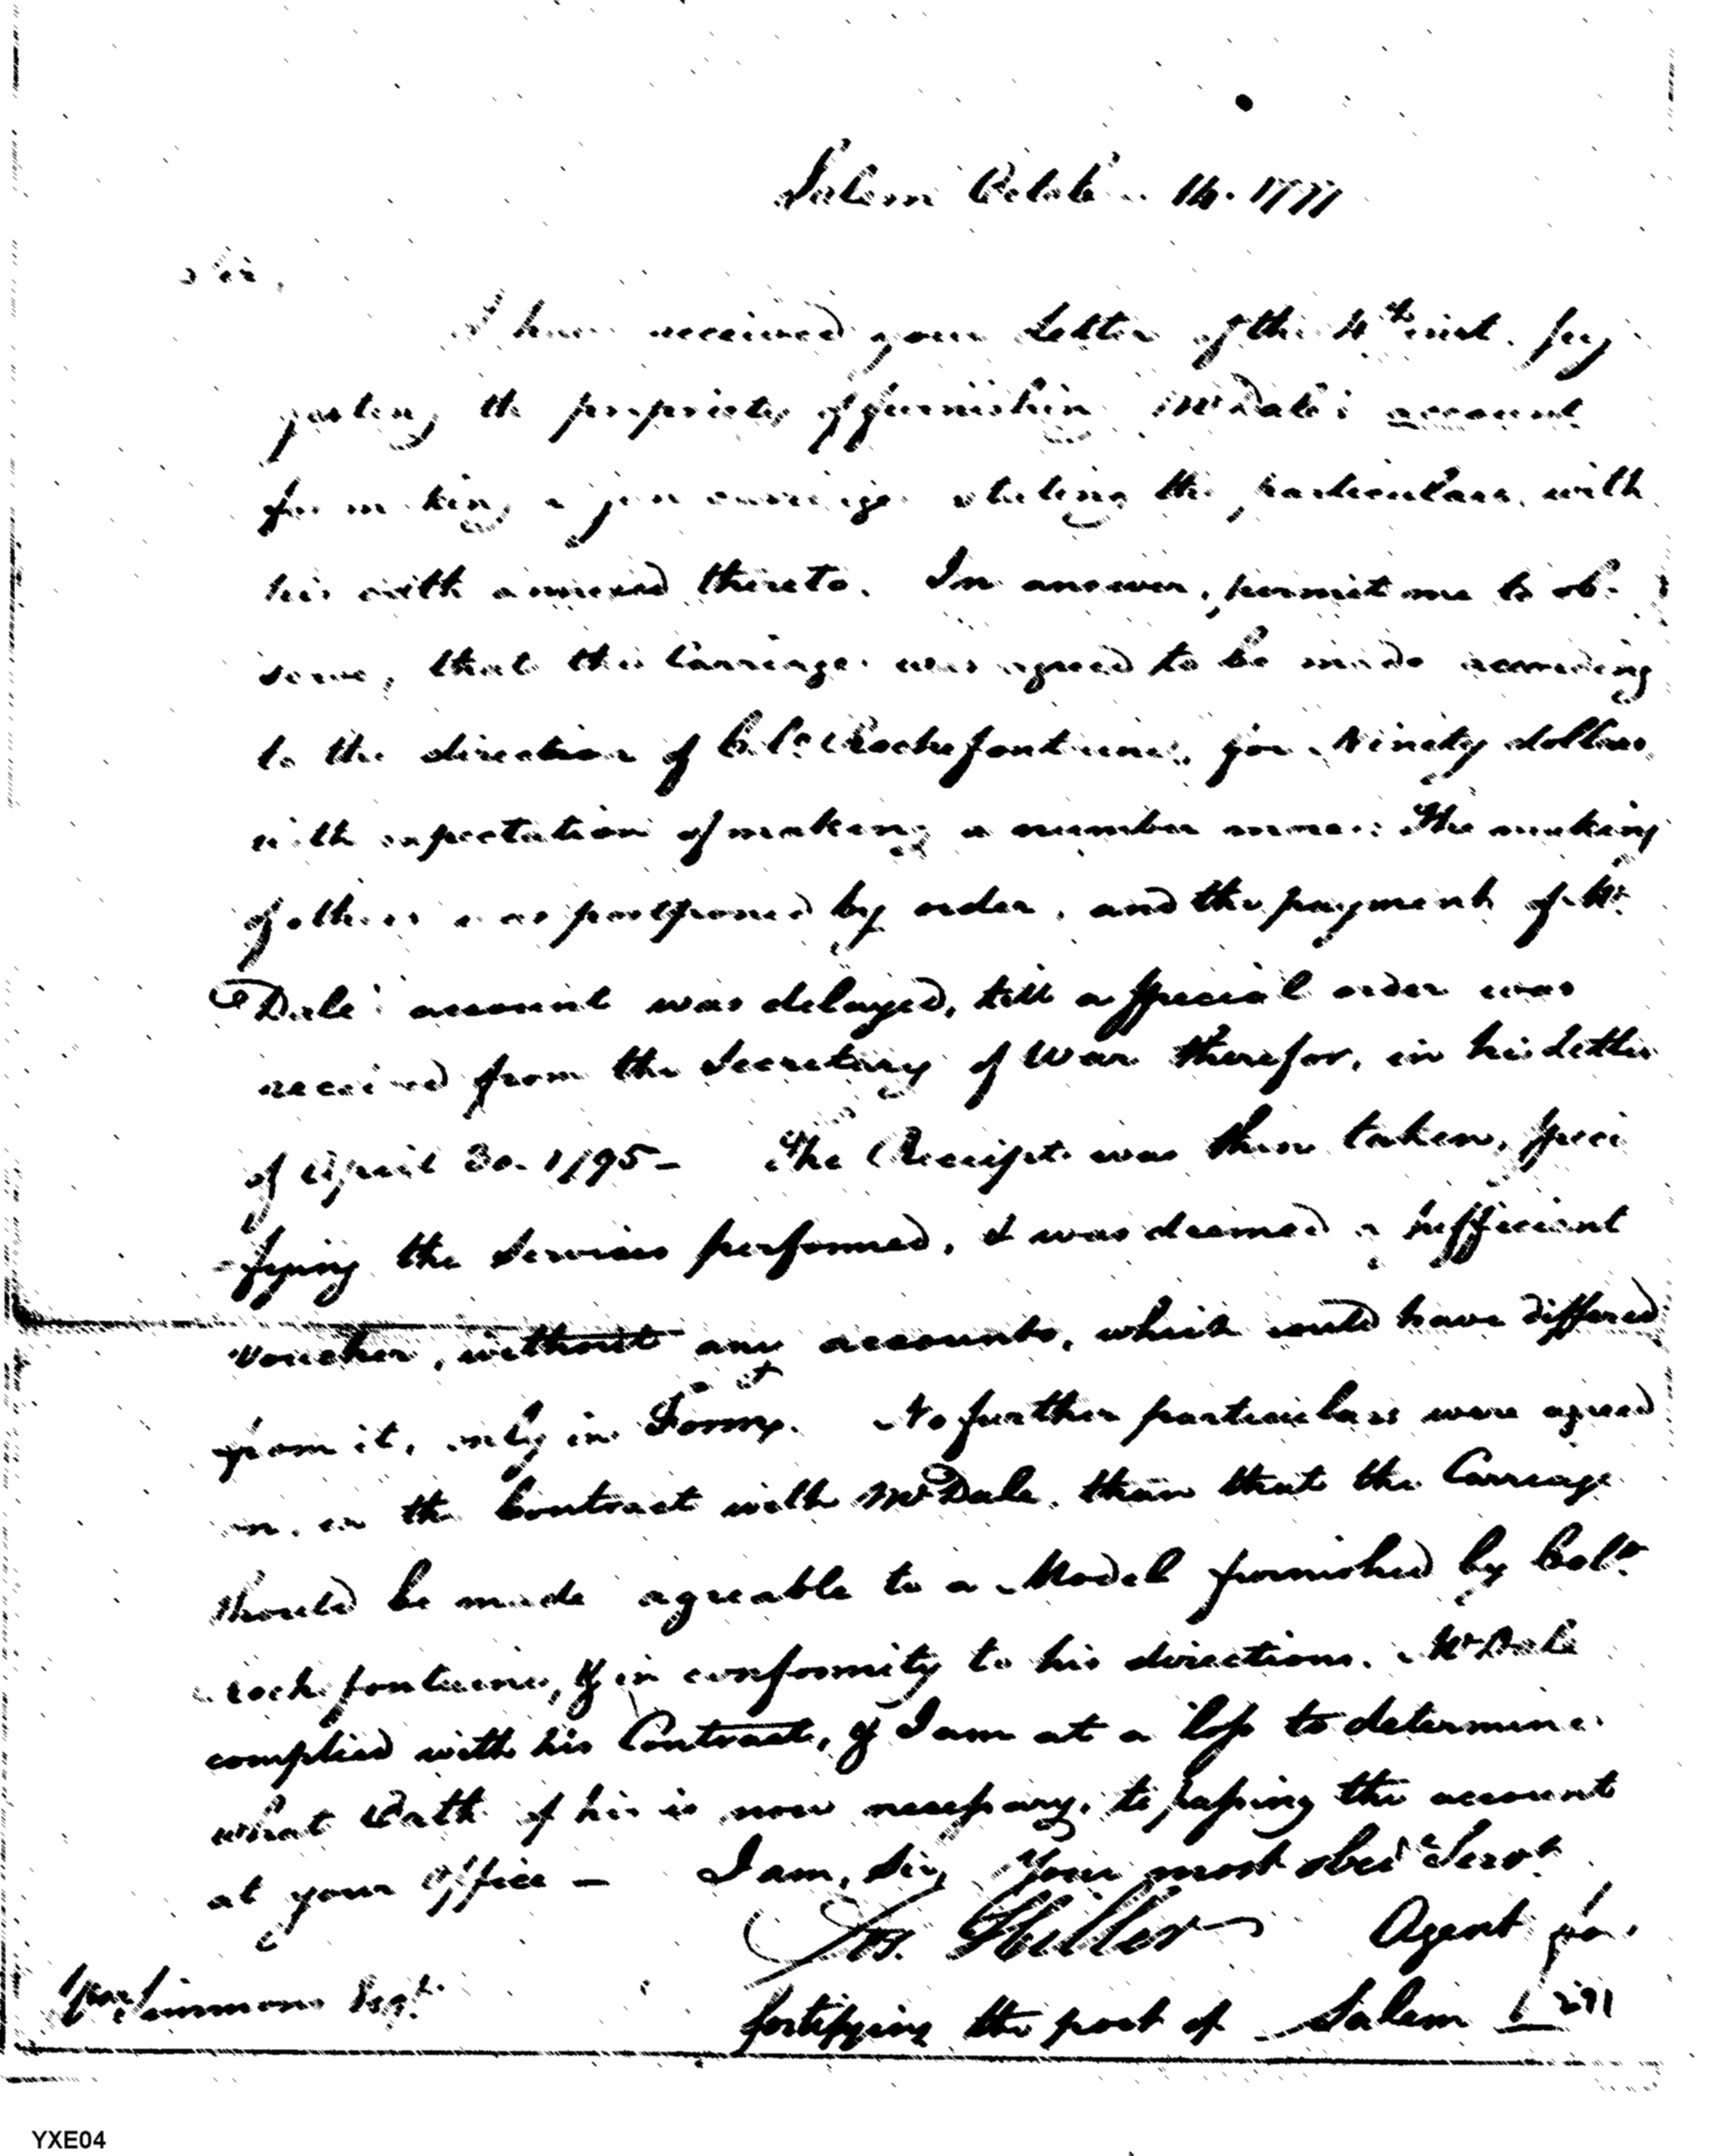 Salem October 14. 1797
Sir,
I have received your Letter of the 4th inst. sug
gesting the propriety of furnishing Mr Dale's account
for making a gun carriage stating the particulars, with
his oath annexed thereto. In answer, permit me to ob-
serve, that this Carriage was agreed to be made according
to the direction of Colo Rochefontaine, for Ninety dollars
with expectation of making a number more: The making
of others was postponed by order, and the payment of Mr
Dale's account was delayed, till a special order was
received from the Secretary of War therefor, in his Letter
of April 30. 1795- The Receipt was then taken, speci
-fying the Services performed, & was deemed a sufficient
Voucher, without any accounts, which could have differed
from it, only in Form. No further particulars were agreed
on, in the Contract with Mr Dale, than that the Carriage
should be made agreable to a Model furnished by Colo
Rochefontaine, & in conformity to his directions. Mr Dale
complied with his Contract, & I am at a loss to determine
what Oath of his is now necessary, to passing the account
at your office - I am, Sir, Your most obedt Servt
Jos. Hiller Agent for
fortifying the port of Salem
Wm Simmons Esqr.
291
YXE04